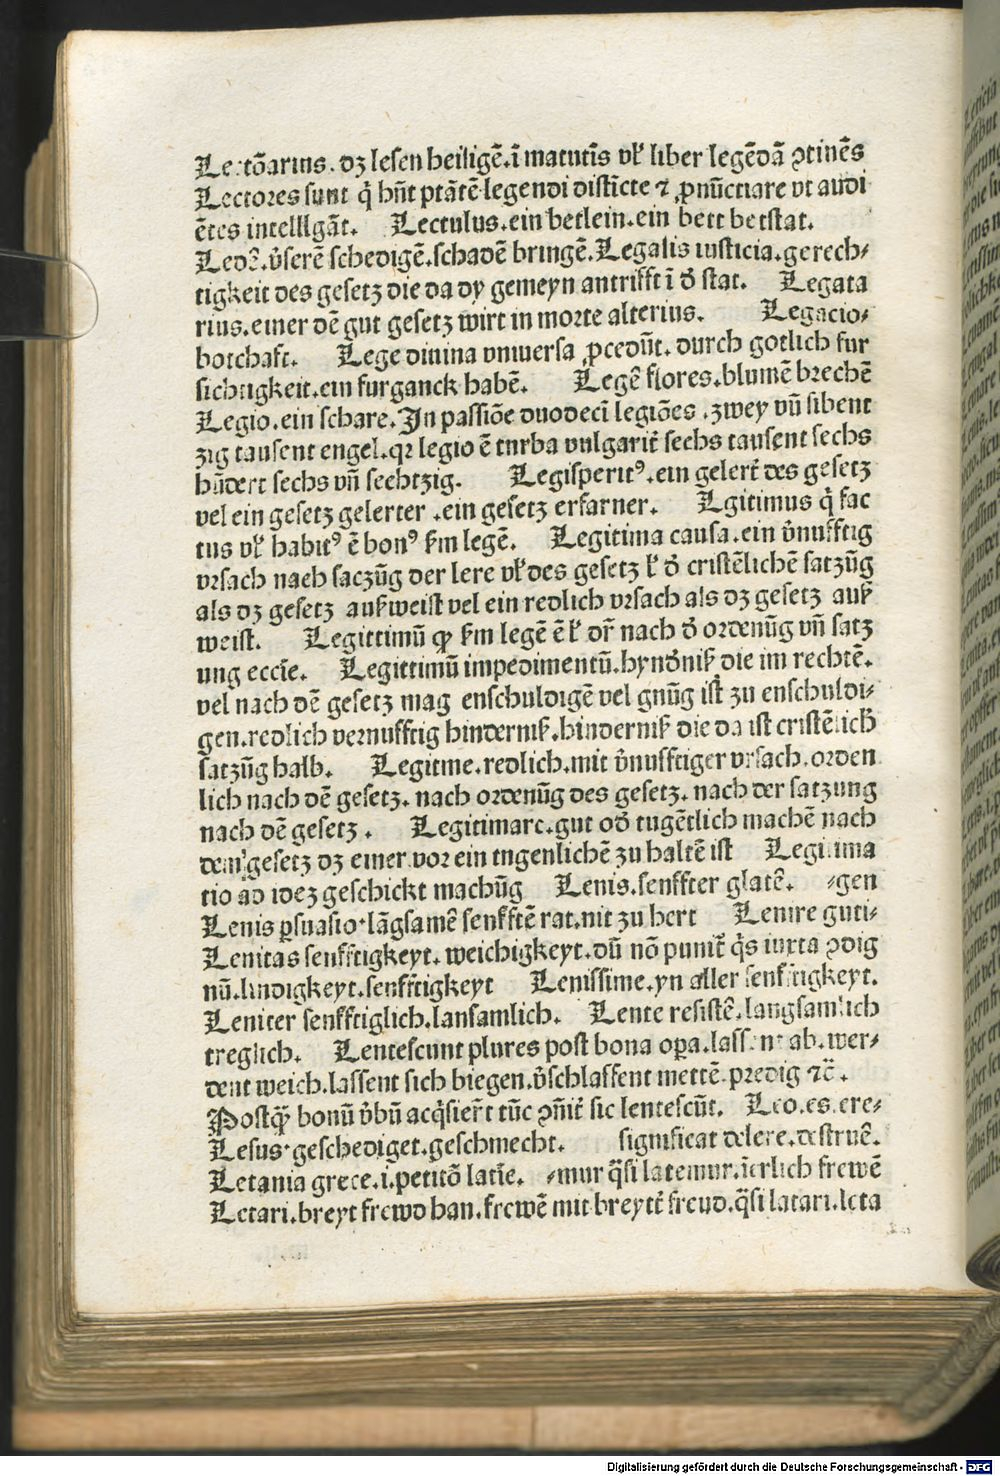 Lectõarius. dz lesen heiligē.ī matutīs vł liber legēdā ꝯtinēs
Lectores sunt q̇ hn̄t ptātē legendi distīcte ⁊ ꝓnūctiare vt audi
ētes intelligāt. Lectulus.ein betlein.ein bett betstat.
Ledē.v̓serē schedigē.schadē bringē.Legalis iusticia.gerech⸗
tigkeit des gesetz die da dy gemeyn antrifft ī d̓ stat. Legata
rius.einer dē gut gesetz wirt in morte alterius. Legacio⸗
botchaft. Lege diuina vniuersa ꝓcedūt. durch gotlich fur
sichtigkeit.ein furganck habē. Legē flores.blumē brechē
Legio.ein schare.In passiōe duodecī legiōes .zwey vn̄ sibent
zig tausent engel.qꝛ legio ē turba vulgarit̄ sechs tausent sechs
hūdert sechs vn̄ sechtzig. Legisperitꝰ.ein gelert̄ des gesetz
vel ein gesetz gelerter .ein gesetz erfarner. Lgitimus q̇ fac
tus vł habitꝰ ē bonꝰ ẜm legē. Legitima causa.ein v̓nufftig
vrsach nach saczūg der lere vł des gesetz ł d̓ cristēlichē satzūg
als dz gesetz aufzweist vel ein redlich vrsach als dz gesetz aufz
weist. Legittimū qꝫ ẜm legē ē ł dr̄ nach d̓ ordenūg vn̄ satz
ung eccīe. Legittimū impedimentū.hynd̓niß die im rechtē.
vel nach dē gesetz mag enschuldigē vel gnūg ist zu enschuldi⸗
gen.redlich vernufftig hinderniß.hinderniß die da ist cristēlich̄
satzūg halb. Legitme.redlich.mit v̓nufftiger vrsach.orden
lich nach dē gesetz. nach ordenūg des gesetz. nach der satzung
nach dē gesetz . Legitimare.gut od̓ tugētlich machē nach
dem gesetz dz einer vor ein tugenlichē zu haltē ist Legitima
tio ad idez geschickt machūg Lenis.senffter glatē. ⸗gen
Lenis ꝑsuasio.lāgsamē senfftē rat.nit zu hert Lenire guti⸗
Lenitas senfftigkeyt. weichigkeyt.dū nō punit̄ q̇s iuxta ꝯdig
nū.lindigkeyt.senfftigkeyt Lenissime.yn aller senfftigkeyt.
Leniter senfftiglich.lansamlich. Lente resistē.langsamlich
treglich. Lentescunt plures post bona oꝑa.lassent ab.wer⸗
dent weich.lassent sich biegen.v̓schlaffent mettē.predig ⁊c̄.
Postqꝫ bonū v̓bū acq̇sier̄t tūc ꝯmit̄ sic lentescūt. Leo.es.ere⸗
Lesus.geschediget.geschmecht. significat delere.destruē.
Letania grece.i.petitō latīe. ⸗mur q̄si latemur.īerlich frewē
Letari.breyt frewd han.frewē mit breytē freud.q̄si latari.leta
Digitalisierung gefördert durch die Deutsche Forschungsgemeinschaft - DFG